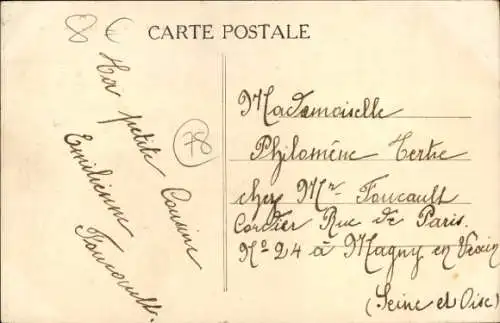 CARTE POSTALE
Ta petite Cousine
Emilienne
Foucault.
Mademoiselle
Philomène Tertre
chez Mr. Foucault
Cordier Rue de Paris.
No 24 à Magny en Vexin
(Seine et Oise)